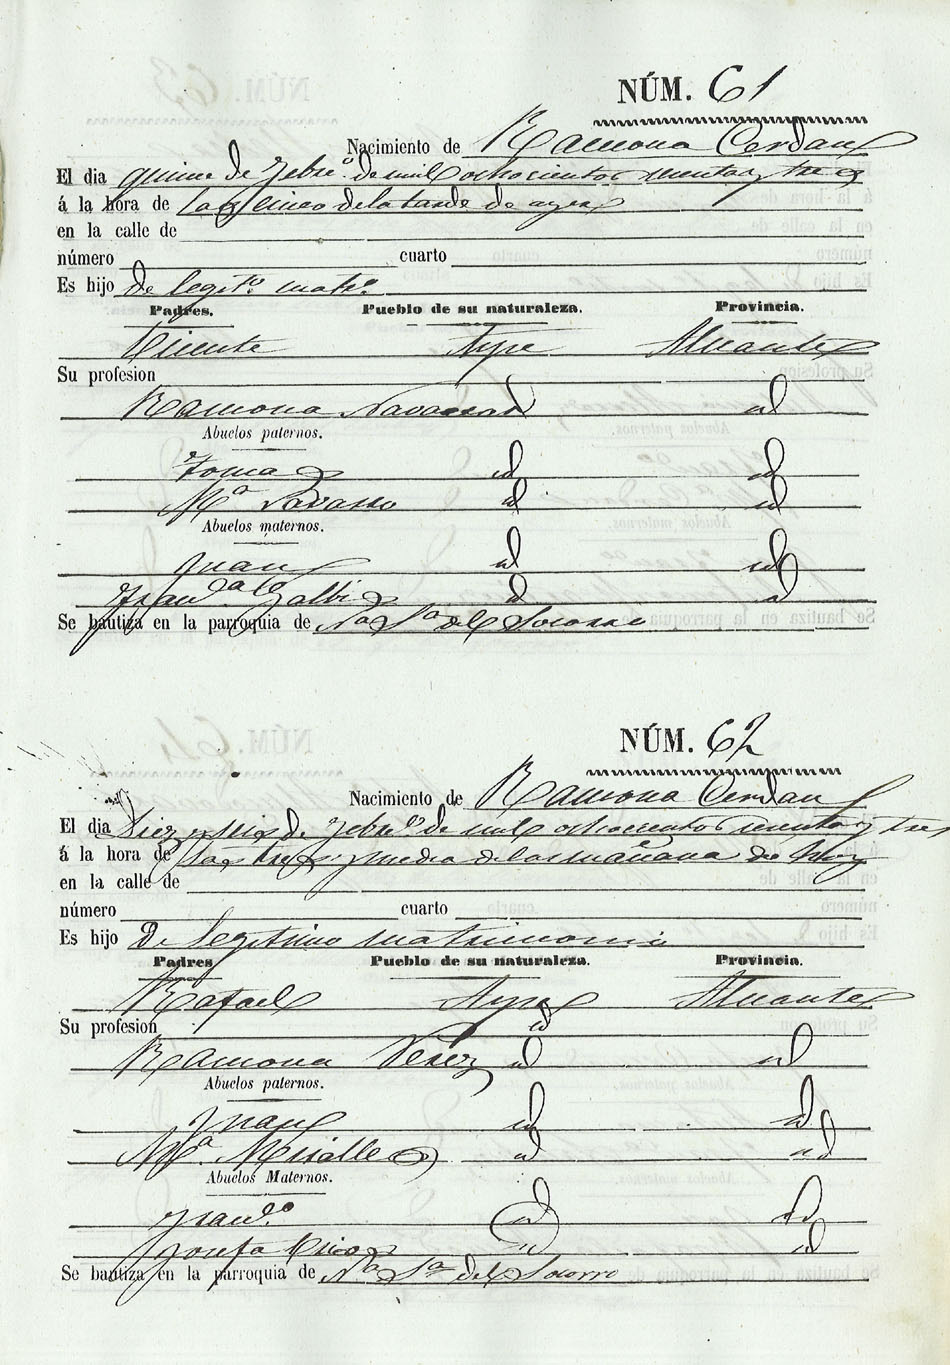 NÚM. 61
Nacimiento de Ramona Cerdan
El dia quince de Febrº. de mil ochocientos setenta y tres
á la hora de las cinco de la tarde de ayer
en la calle de
número cuarto
Es hijo de legitº. matrº.
Padres. Pueblo de su naturaleza. Provincia.
Vicente Aspe Alicante
Su profesion
Ramona Navarro id id
Abuelos paternos.
Tomas id id
Mª Navarro id id
Abuelos maternos.
Juan id id
Franᶜᵃ id id
Se bautiza en la parroquia de Nª Sª del Socorro
NÚM. 62
Nacimiento de Ramona Cerdan
El dia Diez y seis de Febrº de mil ochocientos setenta y tres
á la hora de las tres y media de la mañana de hoy
en la calle de
número cuarto
Es hijo De legitimo matrimonio
Padres Pueblo de su naturaleza. Provincia.
Rafael Aspe Alicante
Su profesion id
Ramona Perez id id
Abuelos paternos.
Juan id id
Mª. Miralles id id
Abuelos Maternos.
Franᶜᵒ id id
Josefa id id
Se bautiza en la parroquia de Nª Sª del Socorro